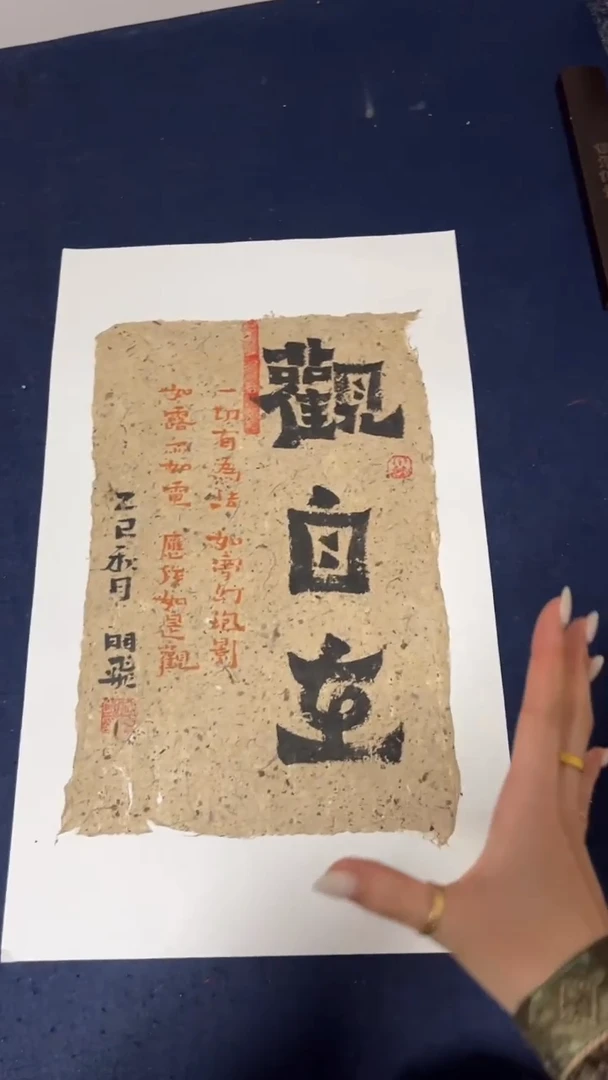 觀自在
一切有為法 如夢幻泡影
如露亦如電 應作如是觀
乙巳秋月 明飛